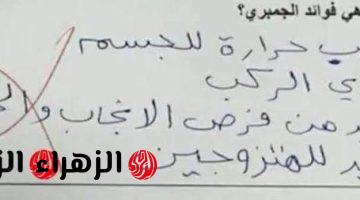 هي فوائد الجمبري؟
ب حرارة للجسم
ي الركب
من فرص الانجاب وال
للمتزوجين
الزهراء الز